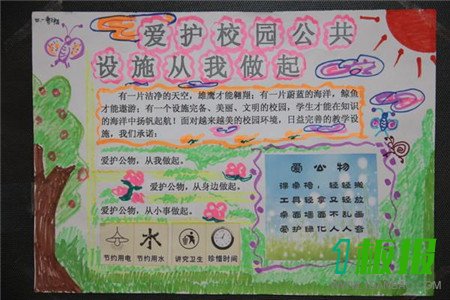 爱护校园公共
设施从我做起
有一片洁净的天空，雄鹰才能翱翔；有一片蔚蓝的海洋，鲸鱼
才能遨游；有一个设施完备、美丽、文明的校园，学生才能在知识
的海洋中扬帆起航！面对越来越美的校园环境，日益完善的教学设
施，我们承诺：
爱护公物，从我做起。
爱护公物，从身边做起。
爱护公物，从小事做起。
爱公物
课桌椅，轻轻搬
工具轻拿又轻放
桌面墙面不乱画
爱护绿化人人夸
节约用电
节约用水
讲究卫生
珍惜时间
1板报